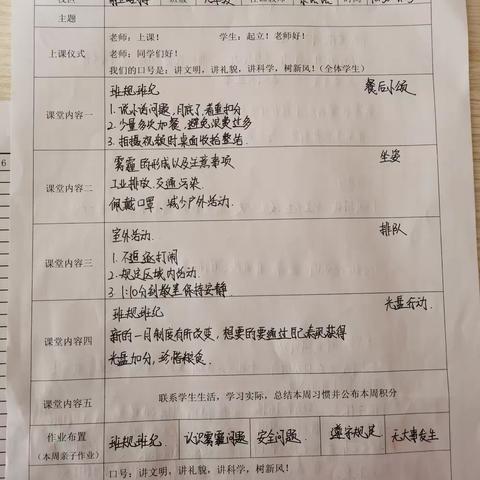 主题
上课仪式
老师：上课！ 学生：起立！老师好！
老师：同学们好！
我们的口号是：讲文明，讲礼貌，讲科学，树新风！(全体学生)
课堂内容一
班规班纪 餐后小结
1. 说小话问题，月底了，着重扣分
2. 少量多次加餐，避免浪费过多
3. 拍摄视频时桌面收拾整洁
课堂内容二
雾霾的形成以及注意事项 坐姿
工业排放、交通污染.
佩戴口罩、减少户外活动.
课堂内容三
室外活动. 排队
1. 不追逐打闹
2. 规定区域内活动.
3. 1:10分到教室保持安静.
课堂内容四
班规班纪 光盘行动.
新的一月制度有所改变，想要的要通过自己表现获得
光盘加分，珍惜粮食.
课堂内容五
联系学生生活，学习实际，总结本周习惯并公布本周积分
作业布置
(本周亲子作业)
班规班纪. 认识雾霾问题 安全问题. 遵守规定 无大事发生
口号：讲文明，讲礼貌，讲科学，树新风！
6